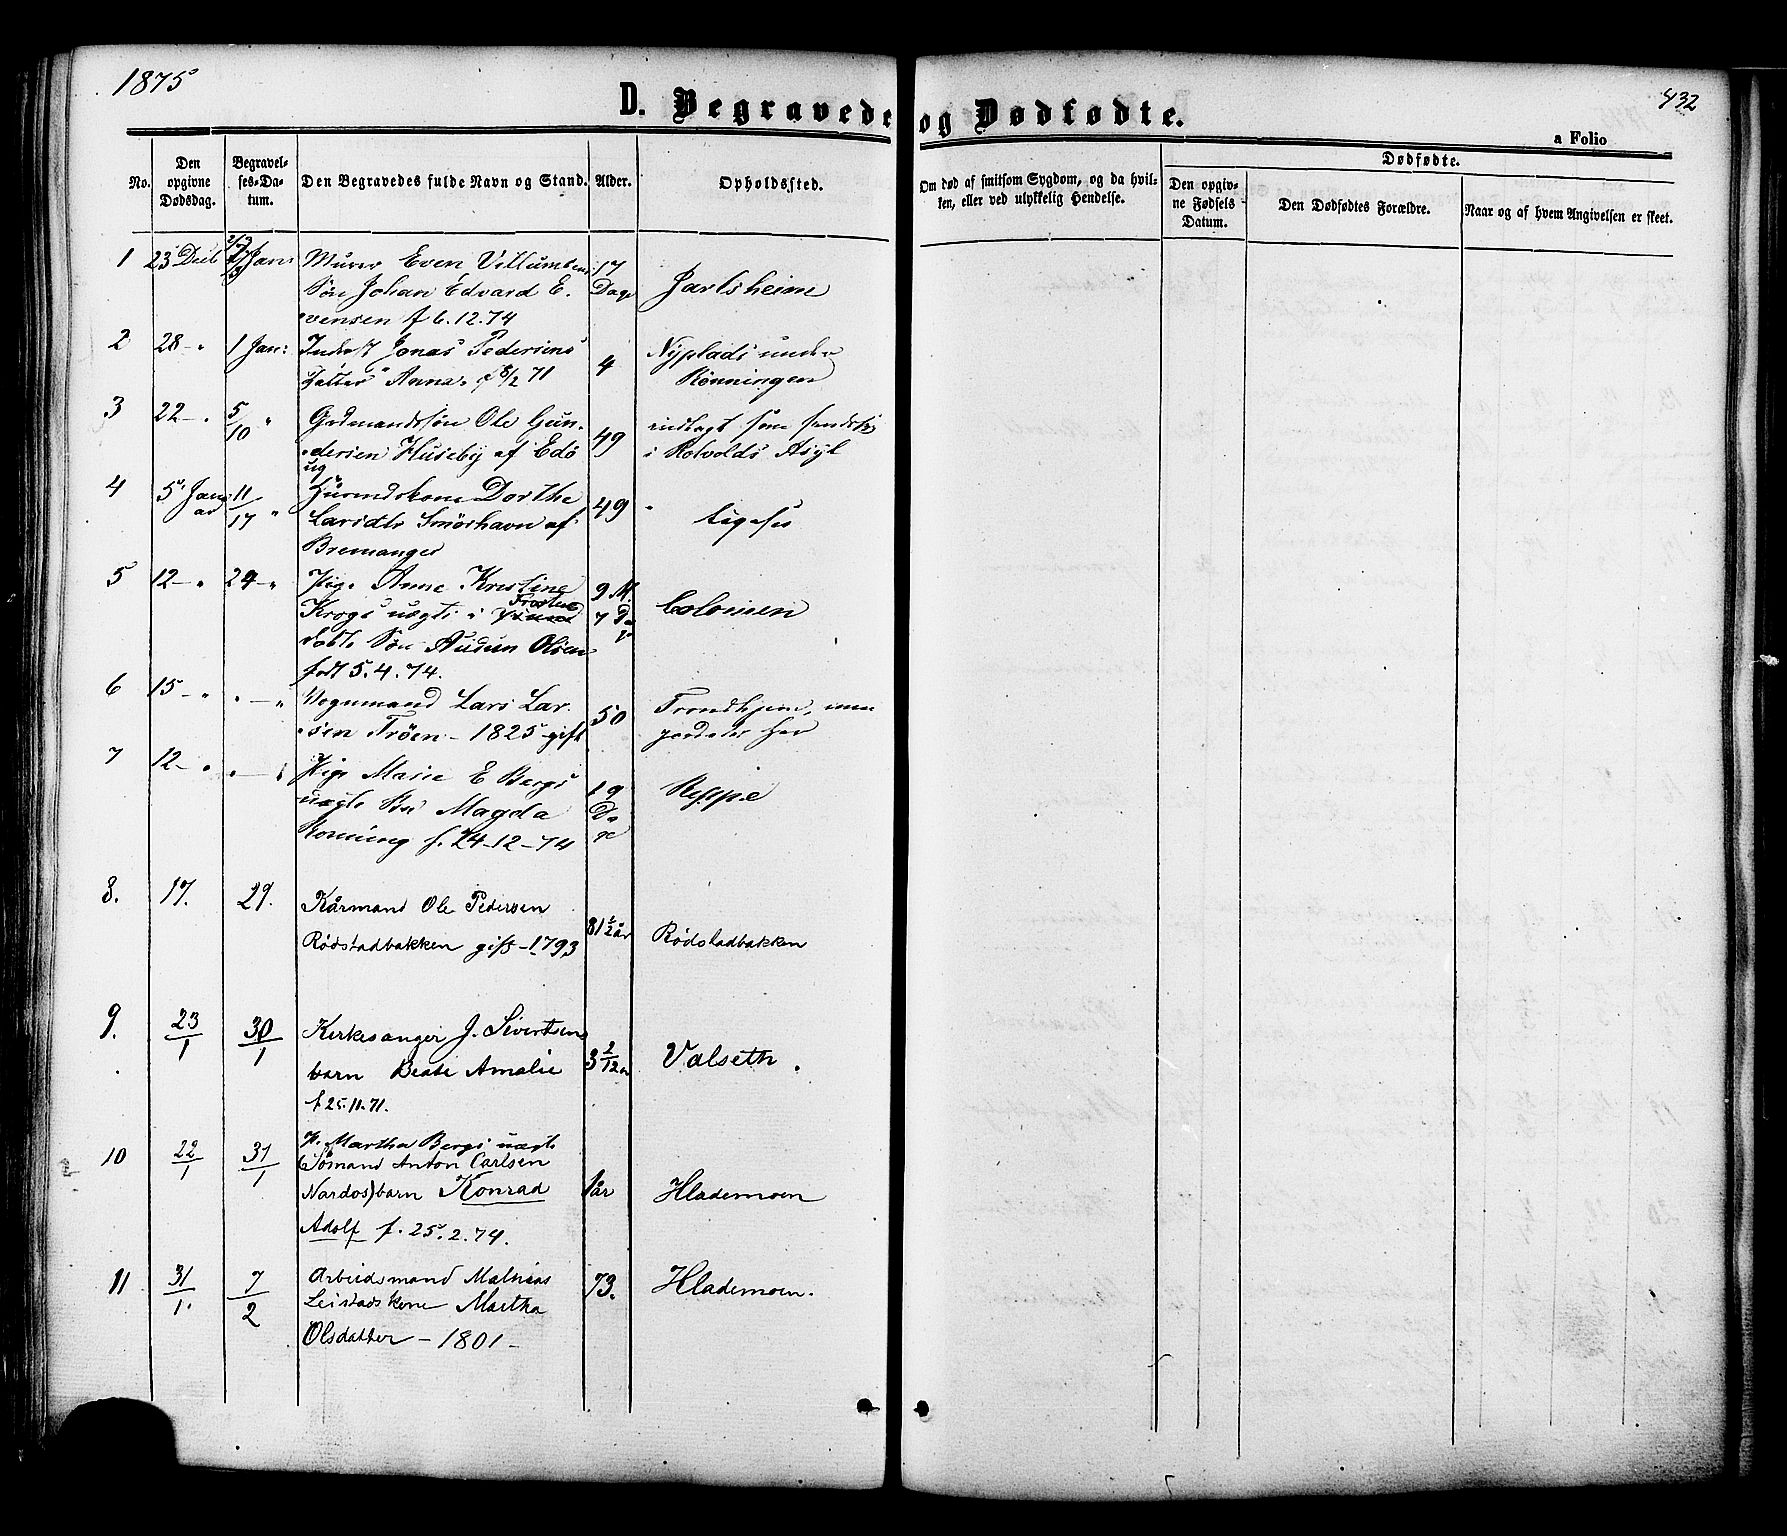 1875
432
D. Begravede og Dødfødte.
a Folio
No.
Den opgivne Dødsdag.
Begravelses-Datum.
Den Begravedes fulde Navn og Stand.
Alder.
Opholdssted.
Om død af smitsom Sygdom, og da hvilken, eller ved ulykkelig Hendelse.
Dødfødte.
Den opgivne Fødsels Datum.
Den Dødfødtes Forældre.
Naar og af hvem Angivelsen er skeet.
1 23 Decb Jan: Murer Even Villumsens 17
Søn Johan Edvard E. Dage Jarlsheim
vensen f 6.12.74
2 28 - " 1 Jan: Inderst Jonas Pedersens Nyplads under
Datter Anna 4 Rønningen
3 22 - " 5/10 " Gadmandssøn Ole Gun- indlagt som
dersen Huseby af Edø 49 i Rotvolds Asyl
4 5 Janu 11/17 " Dorthe 49 "
Smörhavn af ligeså
Bremanger
5 12 - " 24 - " Pige Anne Kristine 9 M.
Krogs uægte i Frosten 7 Da Colonien
døbte Søn Audun Olsen ge
født 5.4.74.
6 15 - " " - " Vognmand Lars Lar- Trondhjem,
sen Trøen - 1825 gift 50 her
7 12 - " " - " Pige Marie E Bergs 19 Reppe
uægte Bn Magda Da
f. 24-12-74 ge
8. 17. 29. Kårmand Ole Pedersen
Rödstadbakken gift - 1793 81 1/2 år Rödstadbakken
9. 23/1 30/1 Kirkesanger J. Sivertsens
barn Beate Amalie 3 2/12 Valseth.
f 25.11.71.
10 22/1 31/1 P. Martha Bergs uægte
(Sömand Anton Carlsen
Nardos) barn Konrad 1 år Hlademoen
Adolf f. 25.2.74.
11 31/1. 7/2 Arbeidsmand Mathias 73. Hlademoen.
Leistads kone Martha
Olsdatter - 1801 -